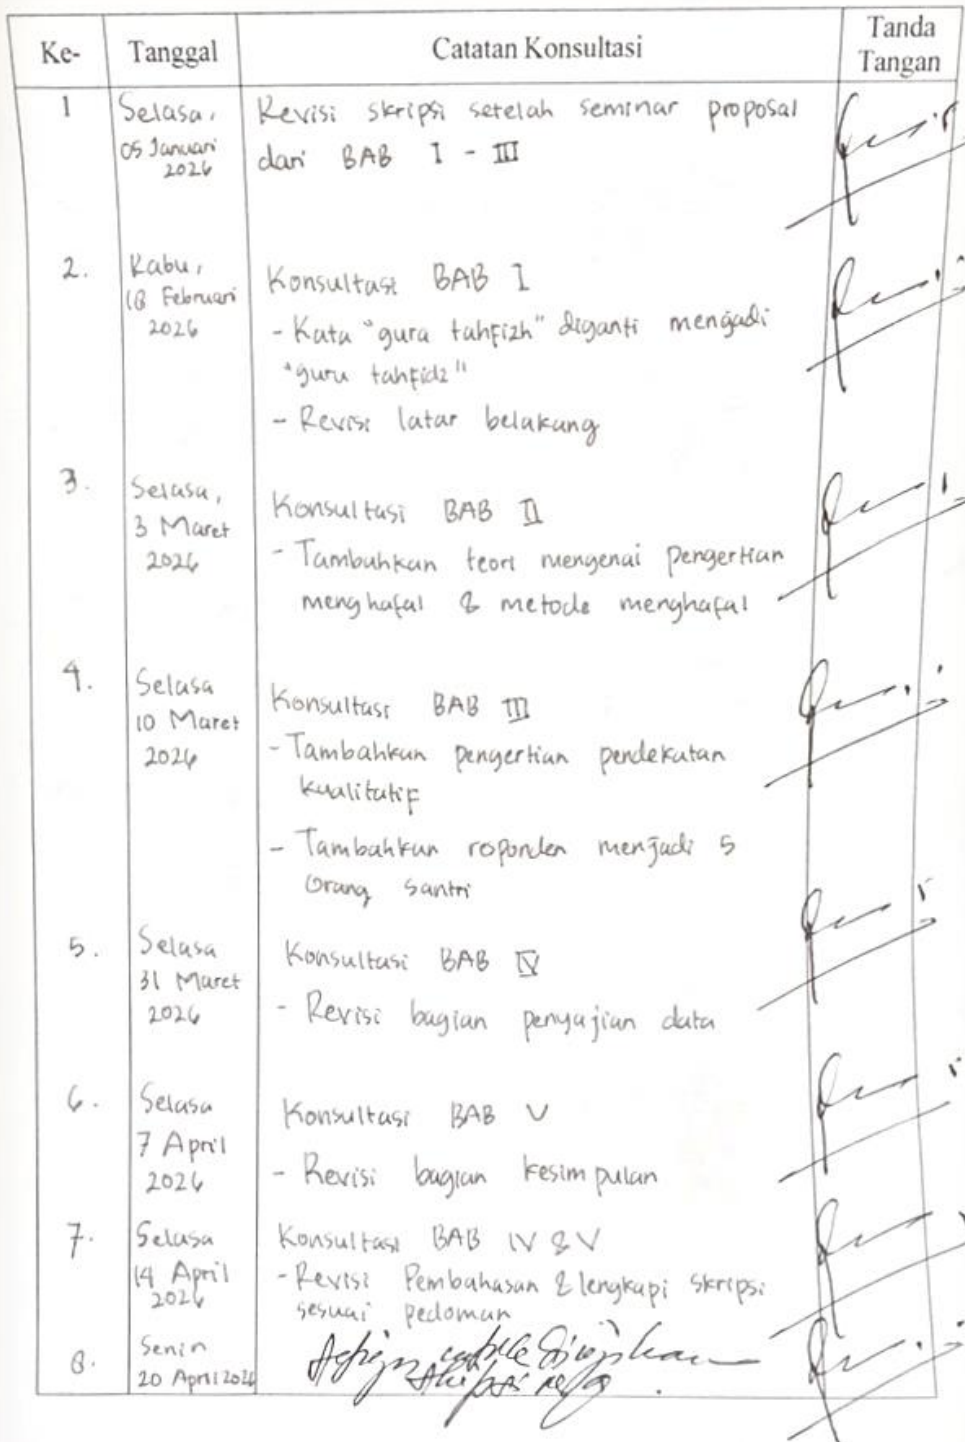 Ke- Tanggal Catatan Konsultasi Tanda Tangan
1 Selasa, 05 Januari 2026 Revisi skripsi setelah seminar proposal
dari BAB I - III
2. Rabu, 18 Februari 2026 Konsultasi BAB I
- Kata "gura tahfizh" diganti menjadi
"guru tahfidz"
- Revisi latar belakang
3. Selasa, 3 Maret 2026 Konsultasi BAB II
- Tambahkan teori mengenai pengertian
menghafal & metode menghafal
4. Selasa 10 Maret 2026 Konsultasi BAB III
- Tambahkan pengertian pendekatan
kualitatif
- Tambahkan roponden menjadi 5
orang santri
5. Selasa 31 Maret 2026 Konsultasi BAB IV
- Revisi bagian penyajian data
6. Selasa 7 April 2026 Konsultasi BAB V
- Revisi bagian kesimpulan
7. Selasa 14 April 2026 Konsultasi BAB IV & V
- Revisi Pembahasan & lengkapi skripsi
sesuai pedoman
8. Senin 20 April 2026